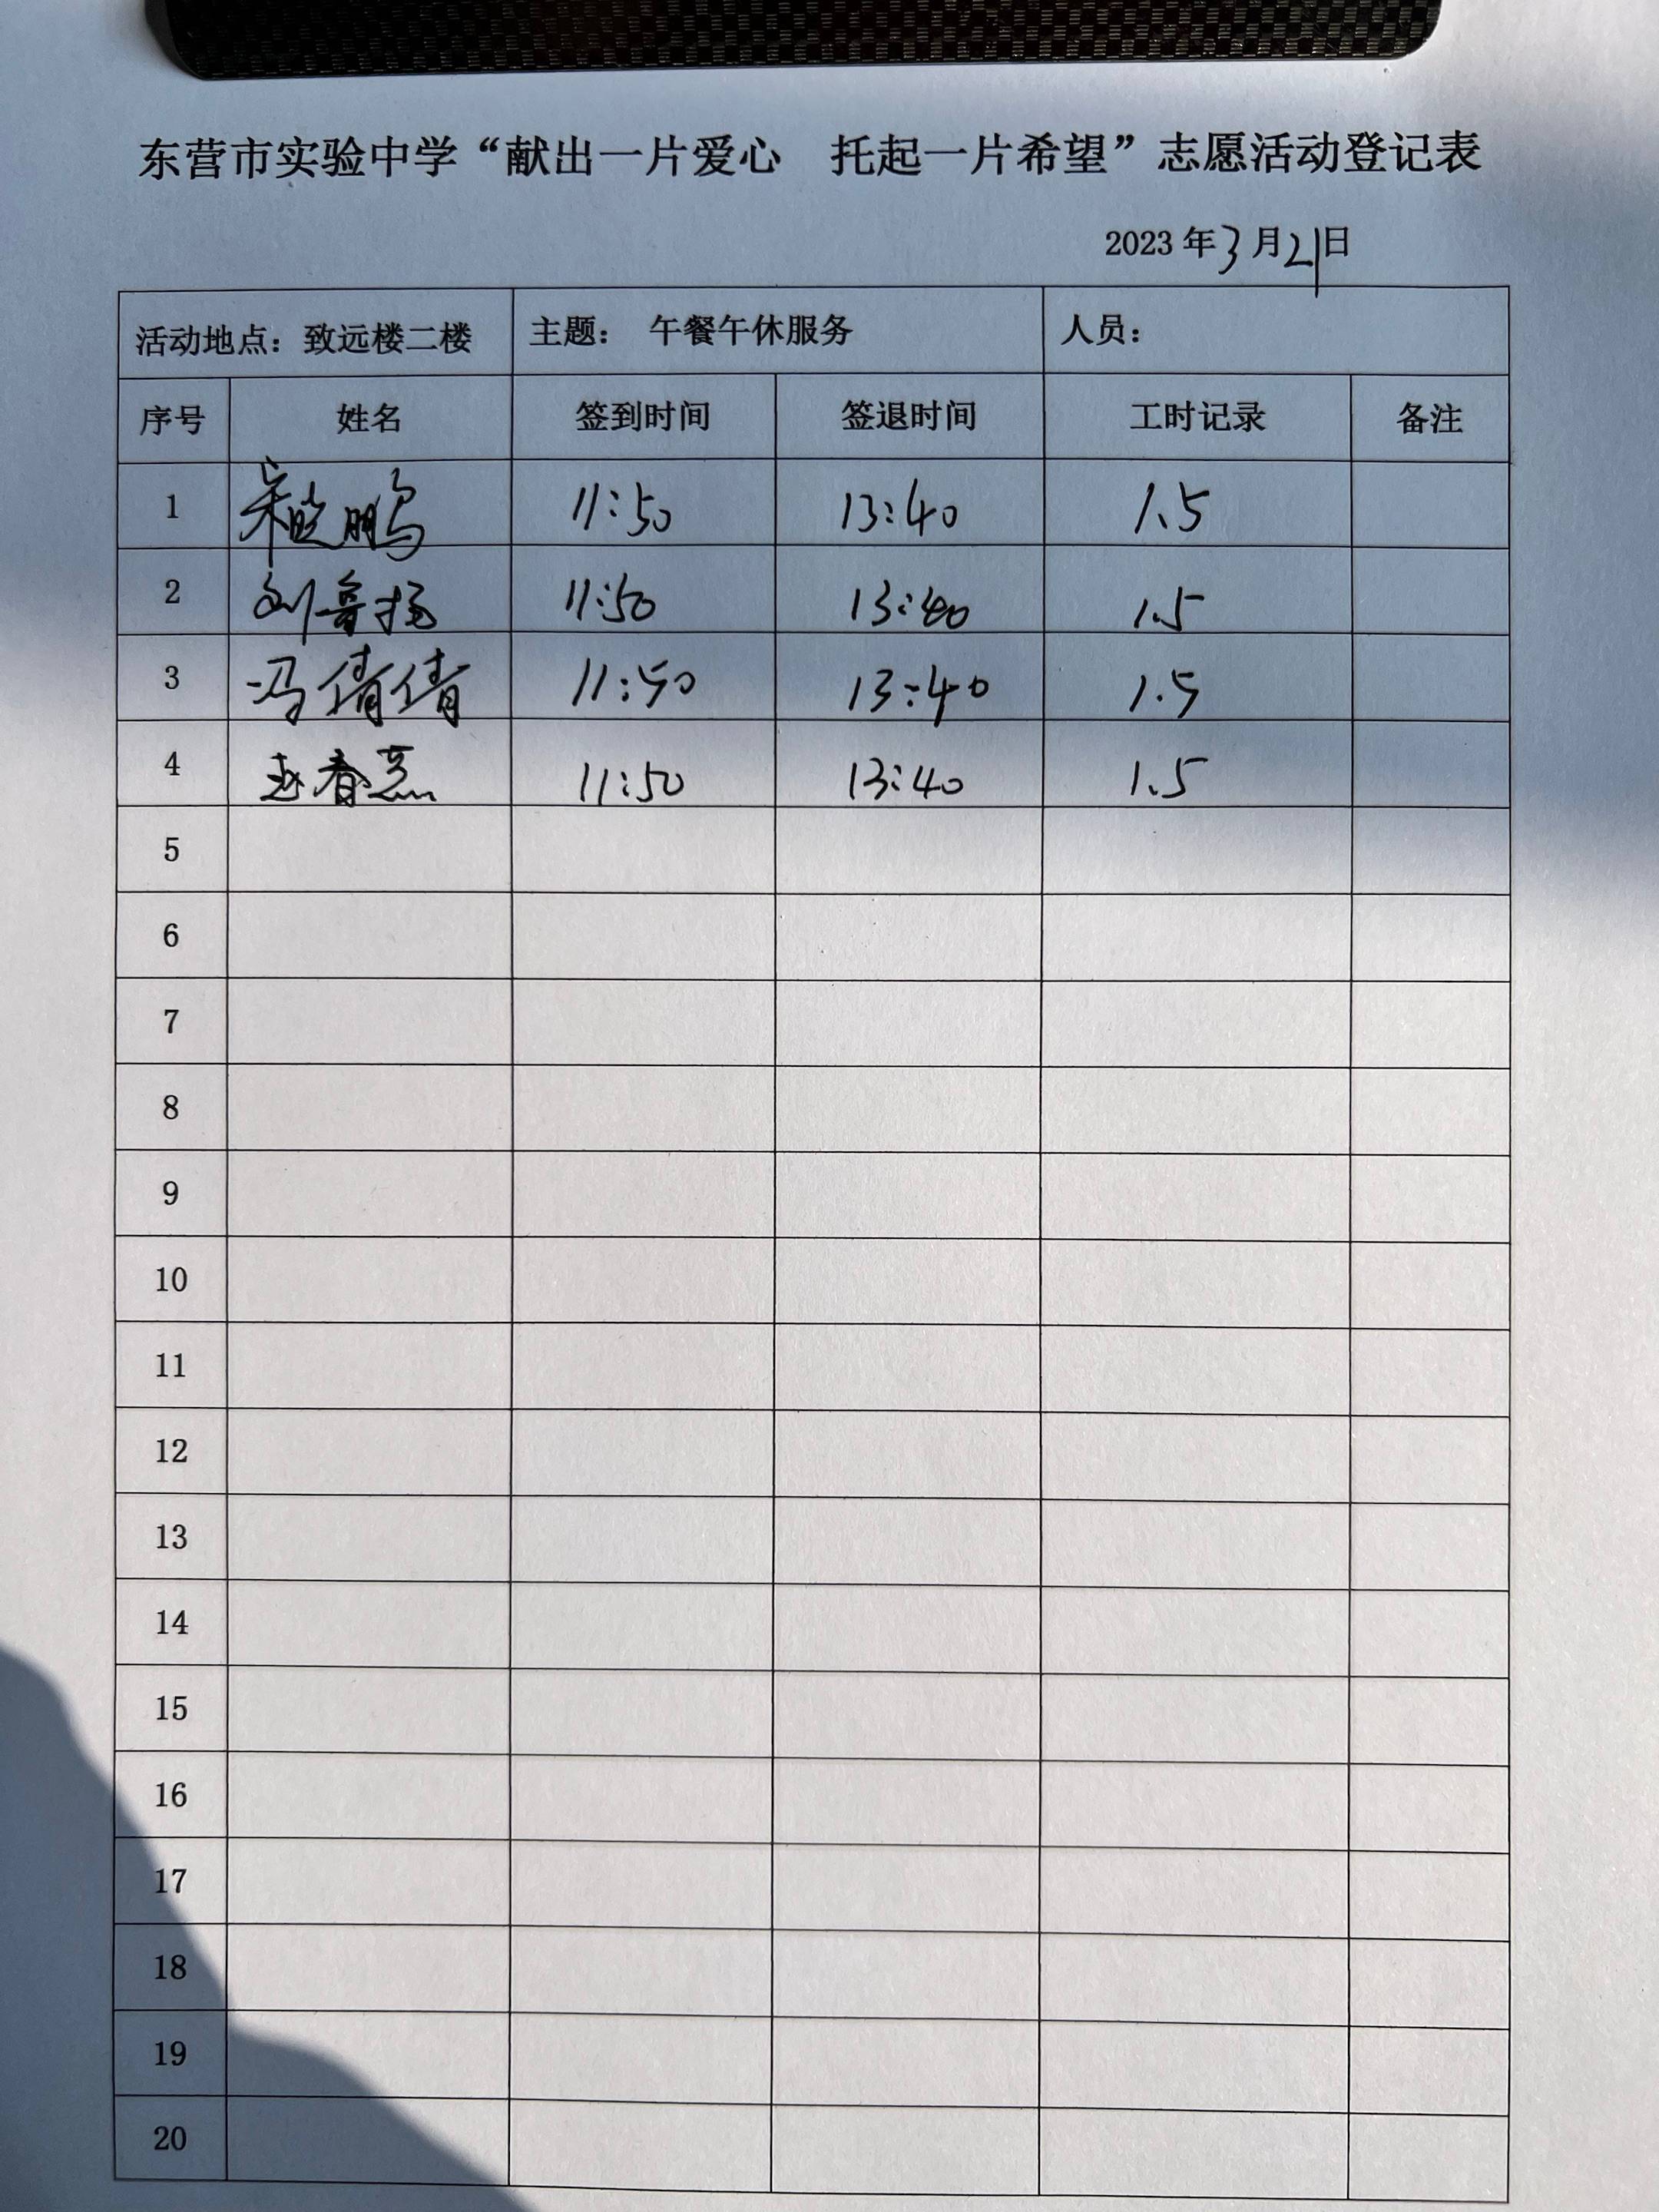 东营市实验中学“献出一片爱心 托起一片希望”志愿活动登记表
2023年3月21日
活动地点：致远楼二楼 主题： 午餐午休服务 人员：
序号 姓名 签到时间 签退时间 工时记录 备注
1 宋晓鹏 11:50 13:40 1.5
2 刘鲁扬 11:50 13:40 1.5
3 冯倩倩 11:50 13:40 1.5
4 赵春 11:50 13:40 1.5
5
6
7
8
9
10
11
12
13
14
15
16
17
18
19
20